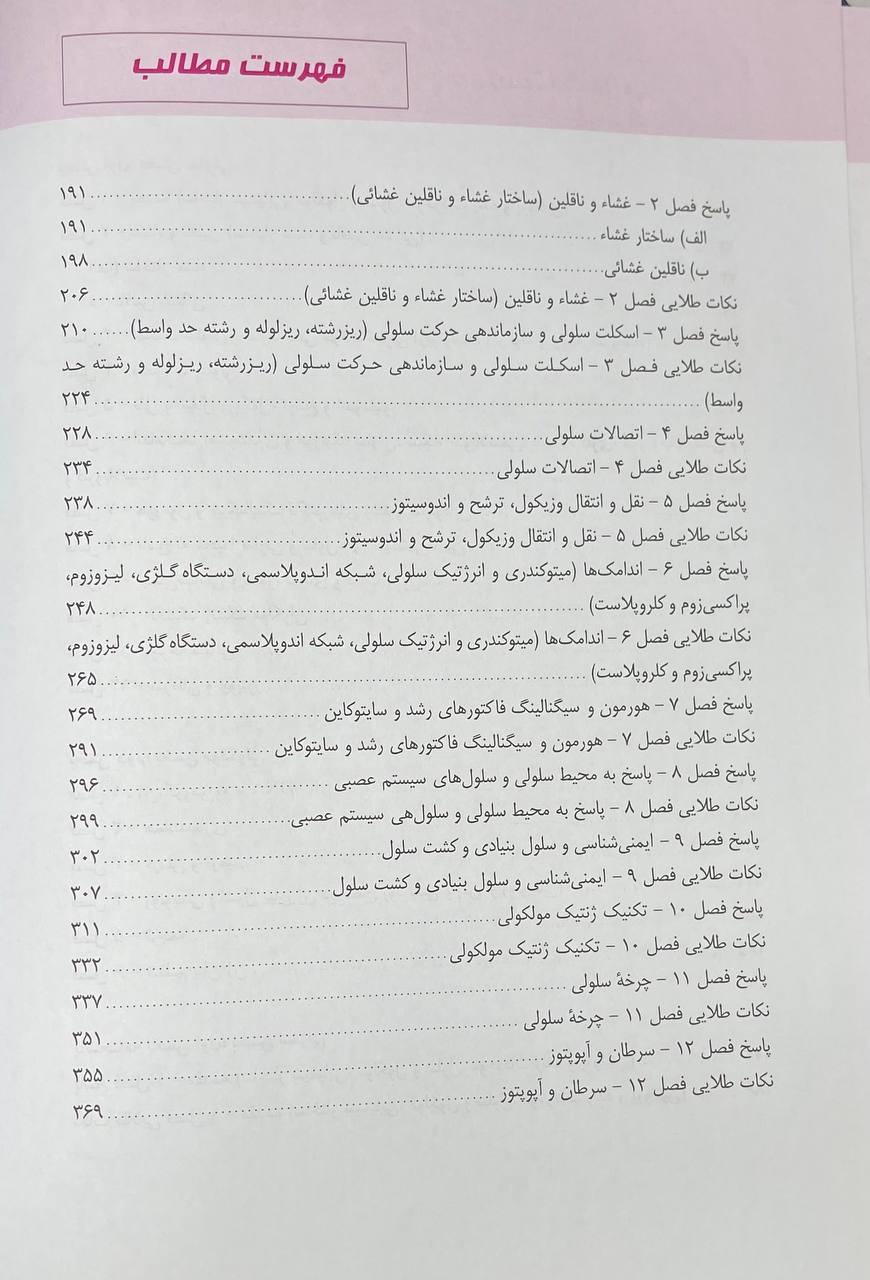 فهرست مطالب
پاسخ فصل ۲ - غشاء و ناقلین (ساختار غشاء و ناقلین غشائی) ........ ۱۹۱
الف) ساختار غشاء ........ ۱۹۱
ب) ناقلین غشائی ........ ۱۹۸
نکات طلایی فصل ۲ - غشاء و ناقلین (ساختار غشاء و ناقلین غشائی) ........ ۲۰۶
پاسخ فصل ۳ - اسکلت سلولی و سازماندهی حرکت سلولی (ریزرشته، ریزلوله و رشته حد واسط) ...... ۲۱۰
نکات طلایی فصل ۳ - اسکلت سلولی و سازماندهی حرکت سلولی (ریزرشته، ریزلوله و رشته حد
واسط) ........ ۲۲۴
پاسخ فصل ۴ - اتصالات سلولی ........ ۲۲۸
نکات طلایی فصل ۴ - اتصالات سلولی ........ ۲۳۴
پاسخ فصل ۵ - نقل و انتقال وزیکول، ترشح و اندوسیتوز ........ ۲۳۸
نکات طلایی فصل ۵ - نقل و انتقال وزیکول، ترشح و اندوسیتوز ........ ۲۴۴
پاسخ فصل ۶ - اندامک‌ها (میتوکندری و انرژتیک سلولی، شبکه اندوپلاسمی، دستگاه گلژی، لیزوزوم،
پراکسی‌زوم و کلروپلاست) ........ ۲۴۸
نکات طلایی فصل ۶ - اندامک‌ها (میتوکندری و انرژتیک سلولی، شبکه اندوپلاسمی، دستگاه گلژی، لیزوزوم،
پراکسی‌زوم و کلروپلاست) ........ ۲۶۵
پاسخ فصل ۷ - هورمون و سیگنالینگ فاکتورهای رشد و سایتوکاین ........ ۲۶۹
نکات طلایی فصل ۷ - هورمون و سیگنالینگ فاکتورهای رشد و سایتوکاین ........ ۲۹۱
پاسخ فصل ۸ - پاسخ به محیط سلولی و سلول‌های سیستم عصبی ........ ۲۹۶
نکات طلایی فصل ۸ - پاسخ به محیط سلولی و سلول‌هی سیستم عصبی ........ ۲۹۹
پاسخ فصل ۹ - ایمنی‌شناسی و سلول بنیادی و کشت سلول ........ ۳۰۲
نکات طلایی فصل ۹ - ایمنی‌شناسی و سلول بنیادی و کشت سلول ........ ۳۰۷
پاسخ فصل ۱۰ - تکنیک ژنتیک مولکولی ........ ۳۱۱
نکات طلایی فصل ۱۰ - تکنیک ژنتیک مولکولی ........ ۳۳۲
پاسخ فصل ۱۱ - چرخۀ سلولی ........ ۳۳۷
نکات طلایی فصل ۱۱ - چرخۀ سلولی ........ ۳۵۱
پاسخ فصل ۱۲ - سرطان و آپوپتوز ........ ۳۵۵
نکات طلایی فصل ۱۲ - سرطان و آپوپتوز ........ ۳۶۹